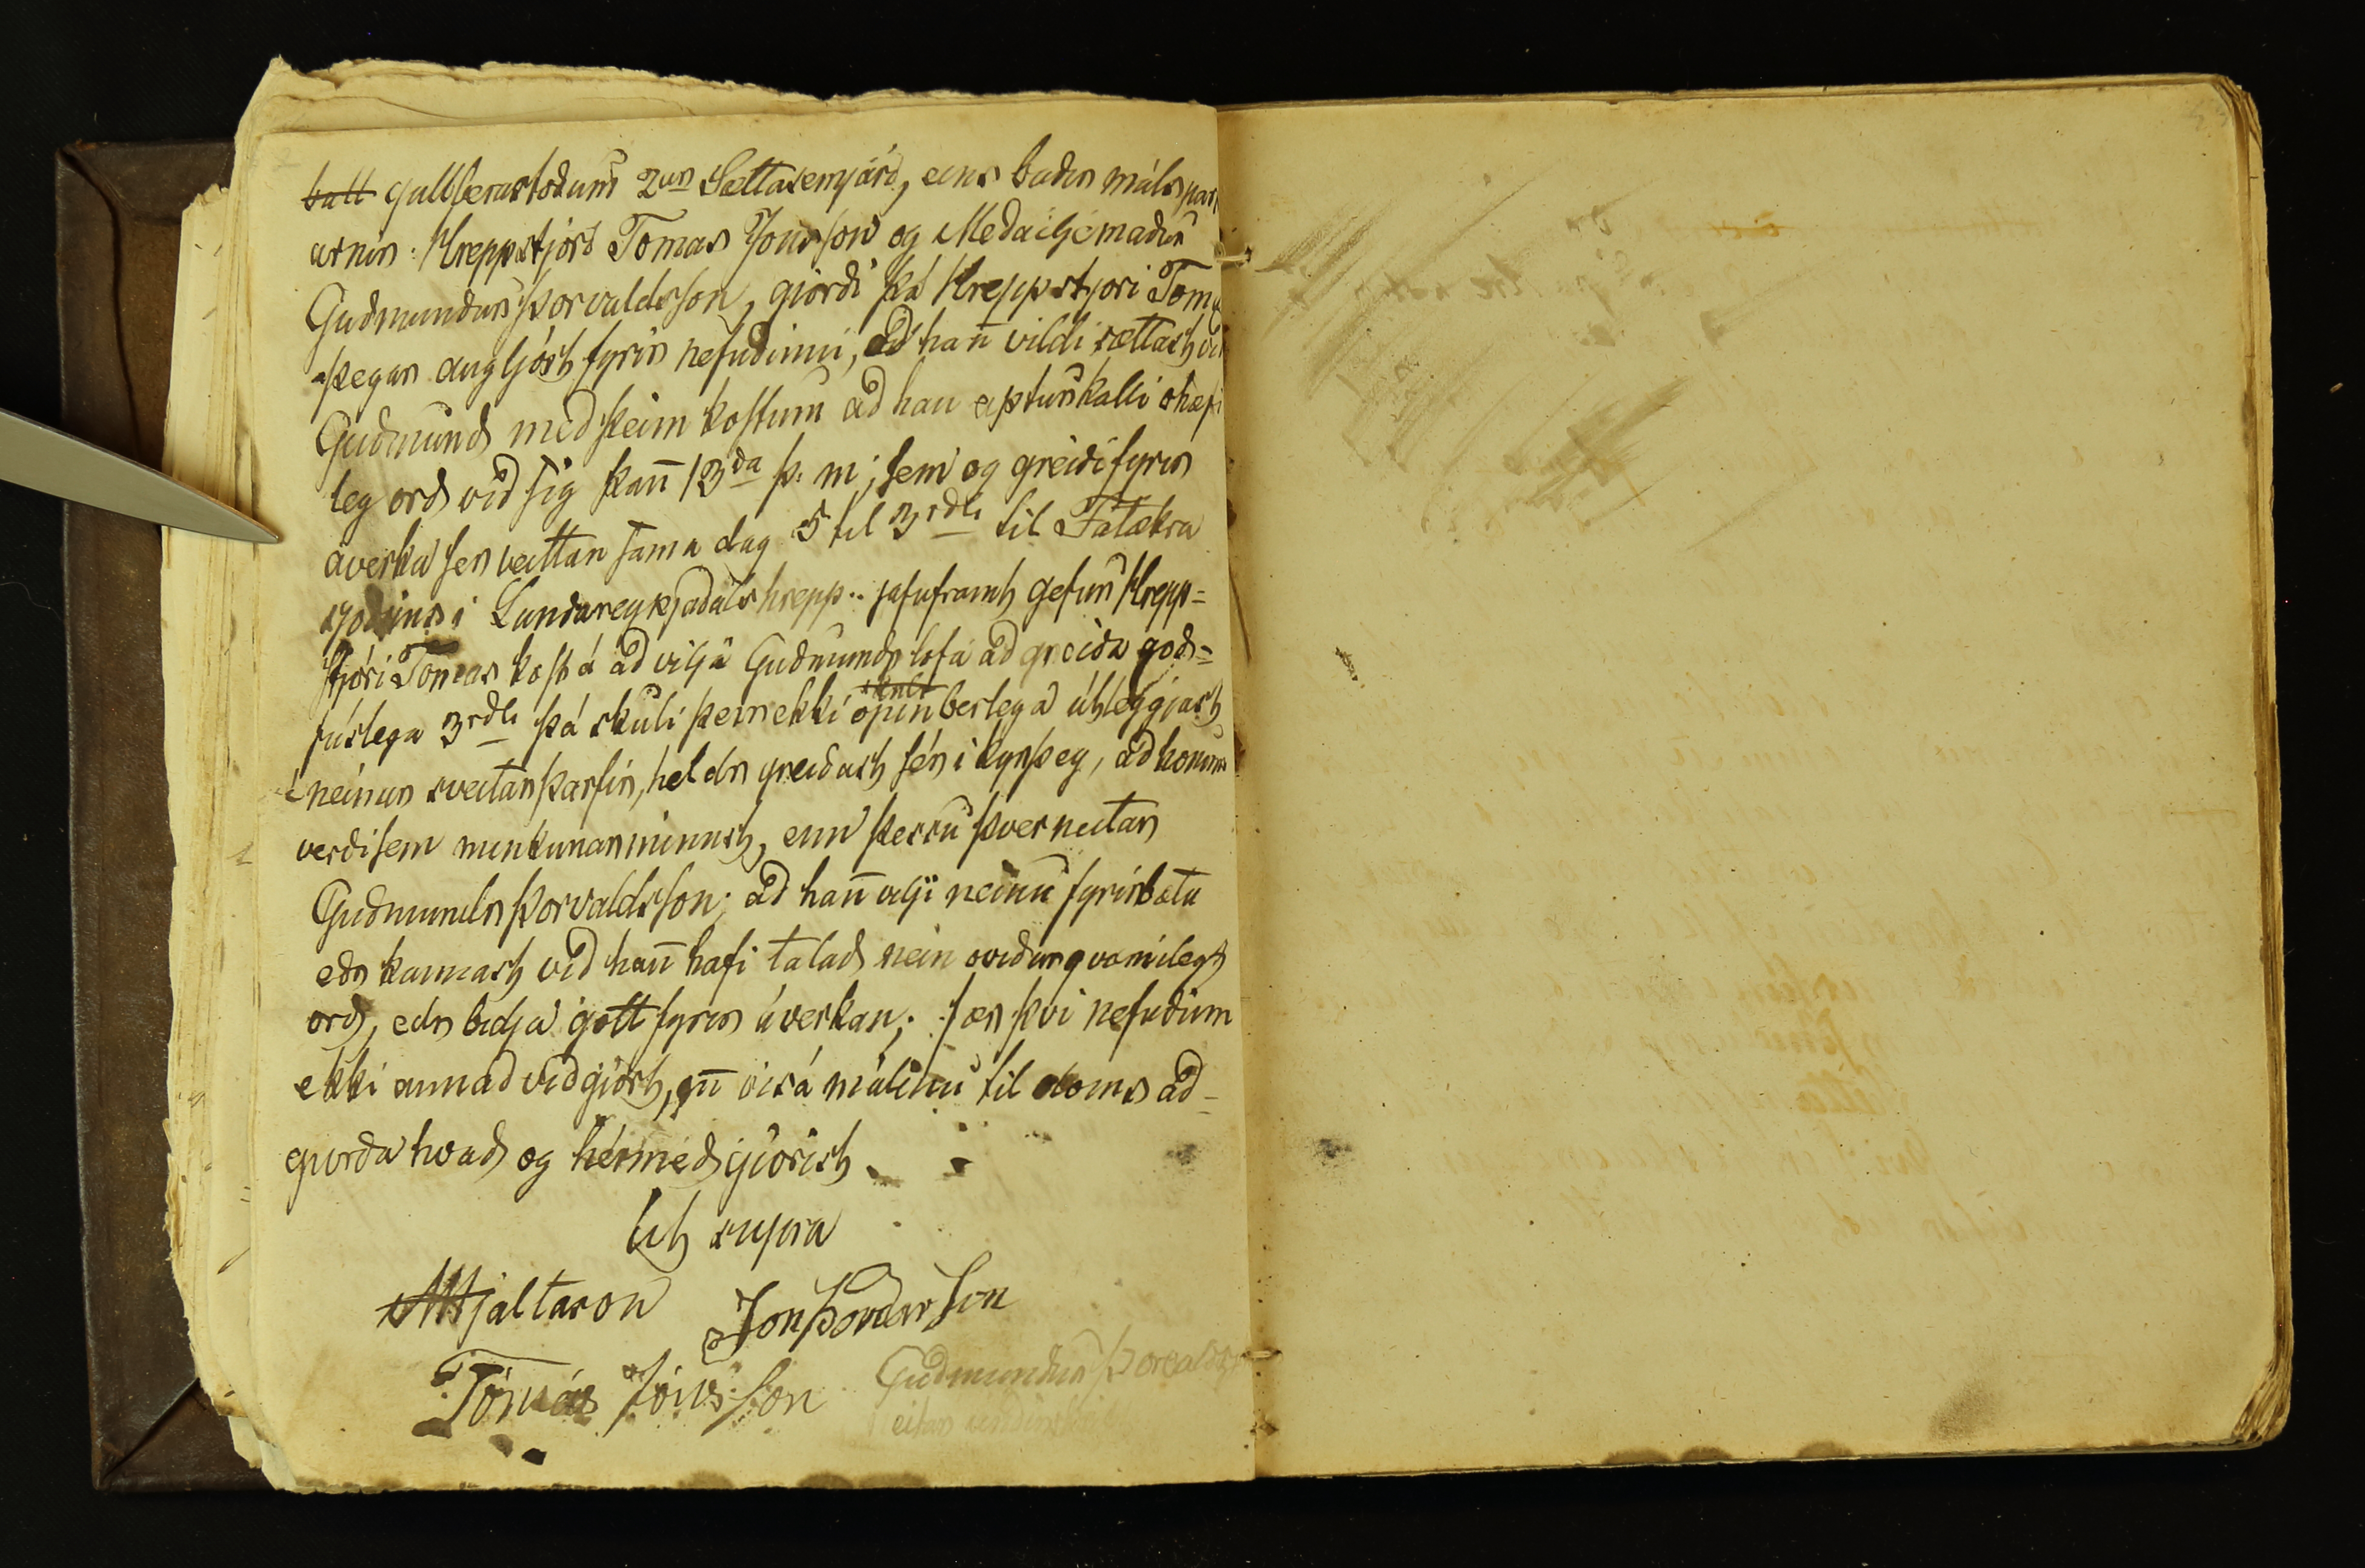 batt gullberastodum 2ur Sættasemjara, eins badir máls par
arnir: Hreppstjori Tomas Jonsson og Medaljemadur
Gudmundur Þorvaldsson, giordi þá Hreppstjori Tom
þegar augljóst fyrir nefndinni, ad han̄ vildi sættast vi
Gudmund med þeim kostum ad han apturkalli ohæfi
leg ord vid sig þan̄ 13da þ. m; sem og greidi fyrir
áverka sier veittan sama dag 5 til 3rdl til Fatækra
sjodsins i Lundareykjadals hrepp.. jafnframt gefur Hrepp=
stjóri Tomas kost á ad vilja Gudmundr lofa ad greida god=
fúslega 3rdl þá skuli þeir ekki opinberlega útleggjast
neinum sveitar þarfir, heldr greidast sér i kyrþey, ad honum
verdi sem minkunar minnst, enn þessu þverneitar
Gudmundr Þorvaldsson; ad han̄ vilji neinu fyrirbæta
edr kannast vid han̄ hafi talad nein ovidurqvæmilegt
ord, edr bidja gott fyrir áverkan; fær þvi nefndinn
ekki annad vidgiört, en̄ vísa málinu til doms ad=
giorda hvad og hérmed giörist.
Ut supra
AHjaltason Jon Þordarson
Tómás Jónsson Gudmundur Þorvalds